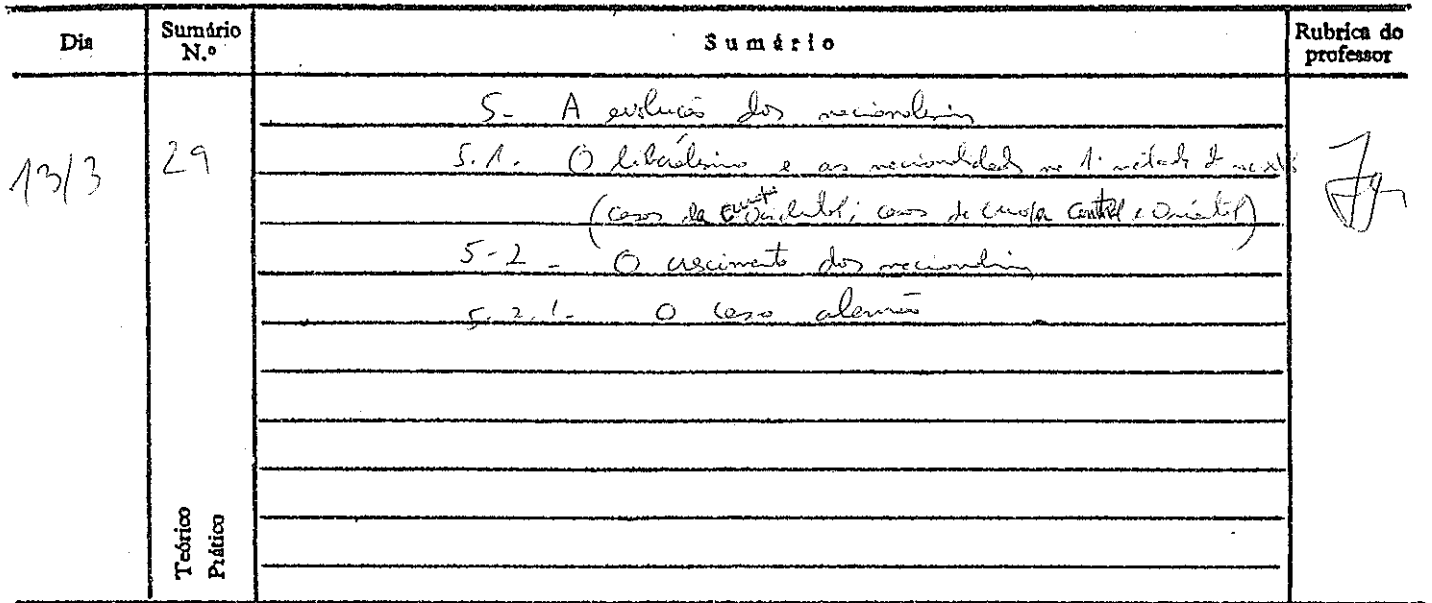 Dia
Sumário N.º
Sumário
Rubrica do professor
13/3
29
5- A evolução dos nacionalismos
5.1. O liberalismo e as nacionalidades na 1ª metade do séc. XIX
(casos da Europa Ocidental; casos de Europa Central e Oriental)
5-2 - O crescimento dos nacionalismos
5.2.1- O caso alemão
Teórico
Prático